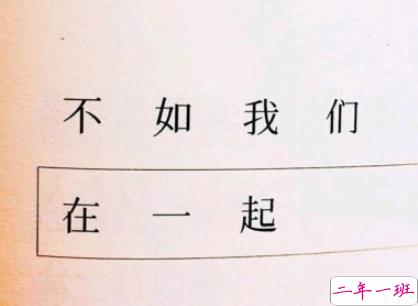 不如我们
在一起
二年一班